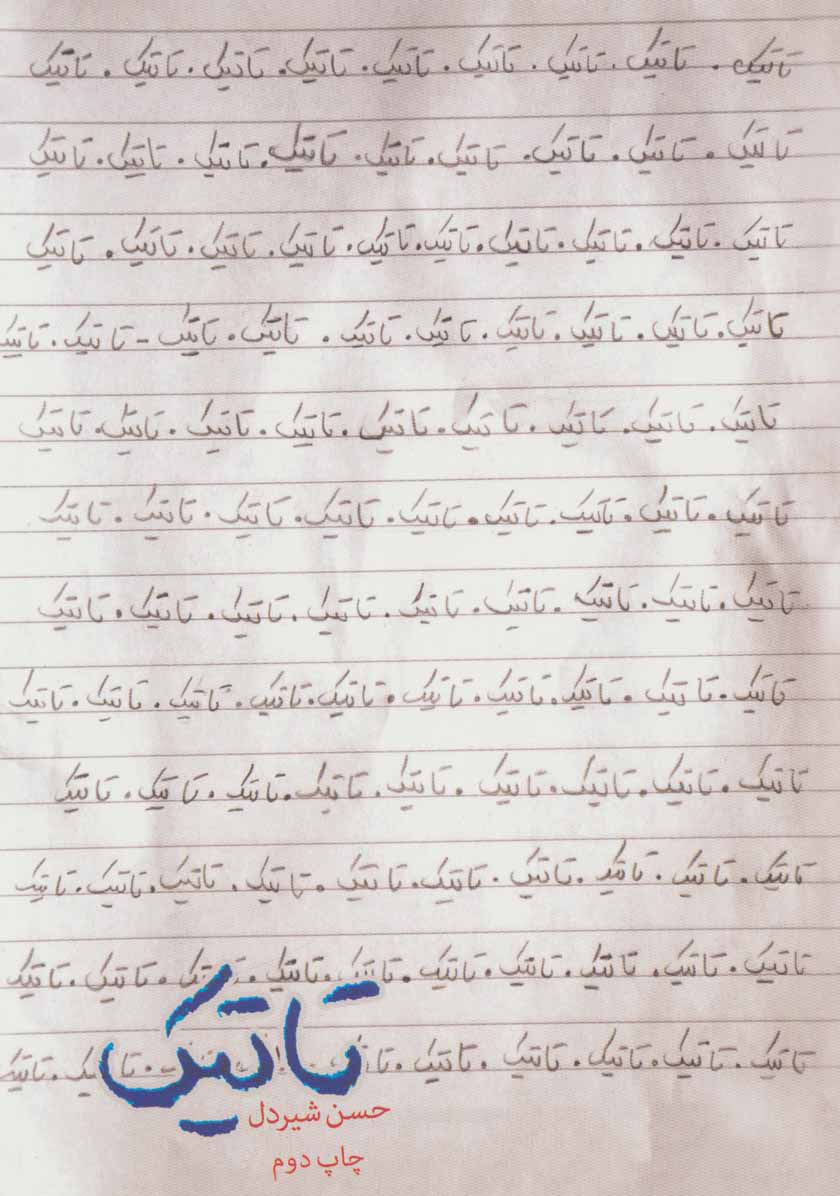 تاتیک . تاتیک . تاتیک . تاتیک . تاتیک . تاتیک . تاتیک . تاتیک . تاتیک
تاتیک . تاتیک . تاتیک . تاتیک . تاتیک . تاتیک . تاتیک . تاتیک . تاتیک
تاتیک . تاتیک . تاتیک . تاتیک . تاتیک . تاتیک . تاتیک . تاتیک . تاتیک . تاتیک
تاتیک . تاتیک . تاتیک . تاتیک . تاتیک . تاتیک . تاتیک . تاتیک - تاتیک . تاتیک
تاتیک . تاتیک . تاتیک . تاتیک . تاتیک . تاتیک . تاتیک . تاتیک . تاتیک
تاتیک . تاتیک . تاتیک . تاتیک . تاتیک . تاتیک . تاتیک . تاتیک . تاتیک
تاتیک . تاتیک . تاتیک . تاتیک . تاتیک . تاتیک . تاتیک . تاتیک . تاتیک
تاتیک . تاتیک . تاتیک . تاتیک . تاتیک . تاتیک . تاتیک . تاتیک . تاتیک . تاتیک
تاتیک . تاتیک . تاتیک . تاتیک . تاتیک . تاتیک . تاتیک . تاتیک . تاتیک
تاتیک . تاتیک . تاتیک . تاتیک . تاتیک . تاتیک . تاتیک . تاتیک . تاتیک . تاتیک
تاتیک . تاتیک . تاتیک . تاتیک . تاتیک . تاتیک . تاتیک . تاتیک . تاتیک . تاتیک
تاتیک . تاتیک . تاتیک . تاتیک . تاتیک . تاتیک . تاتیک
تاتیک
حسن شیردل
چاپ دوم